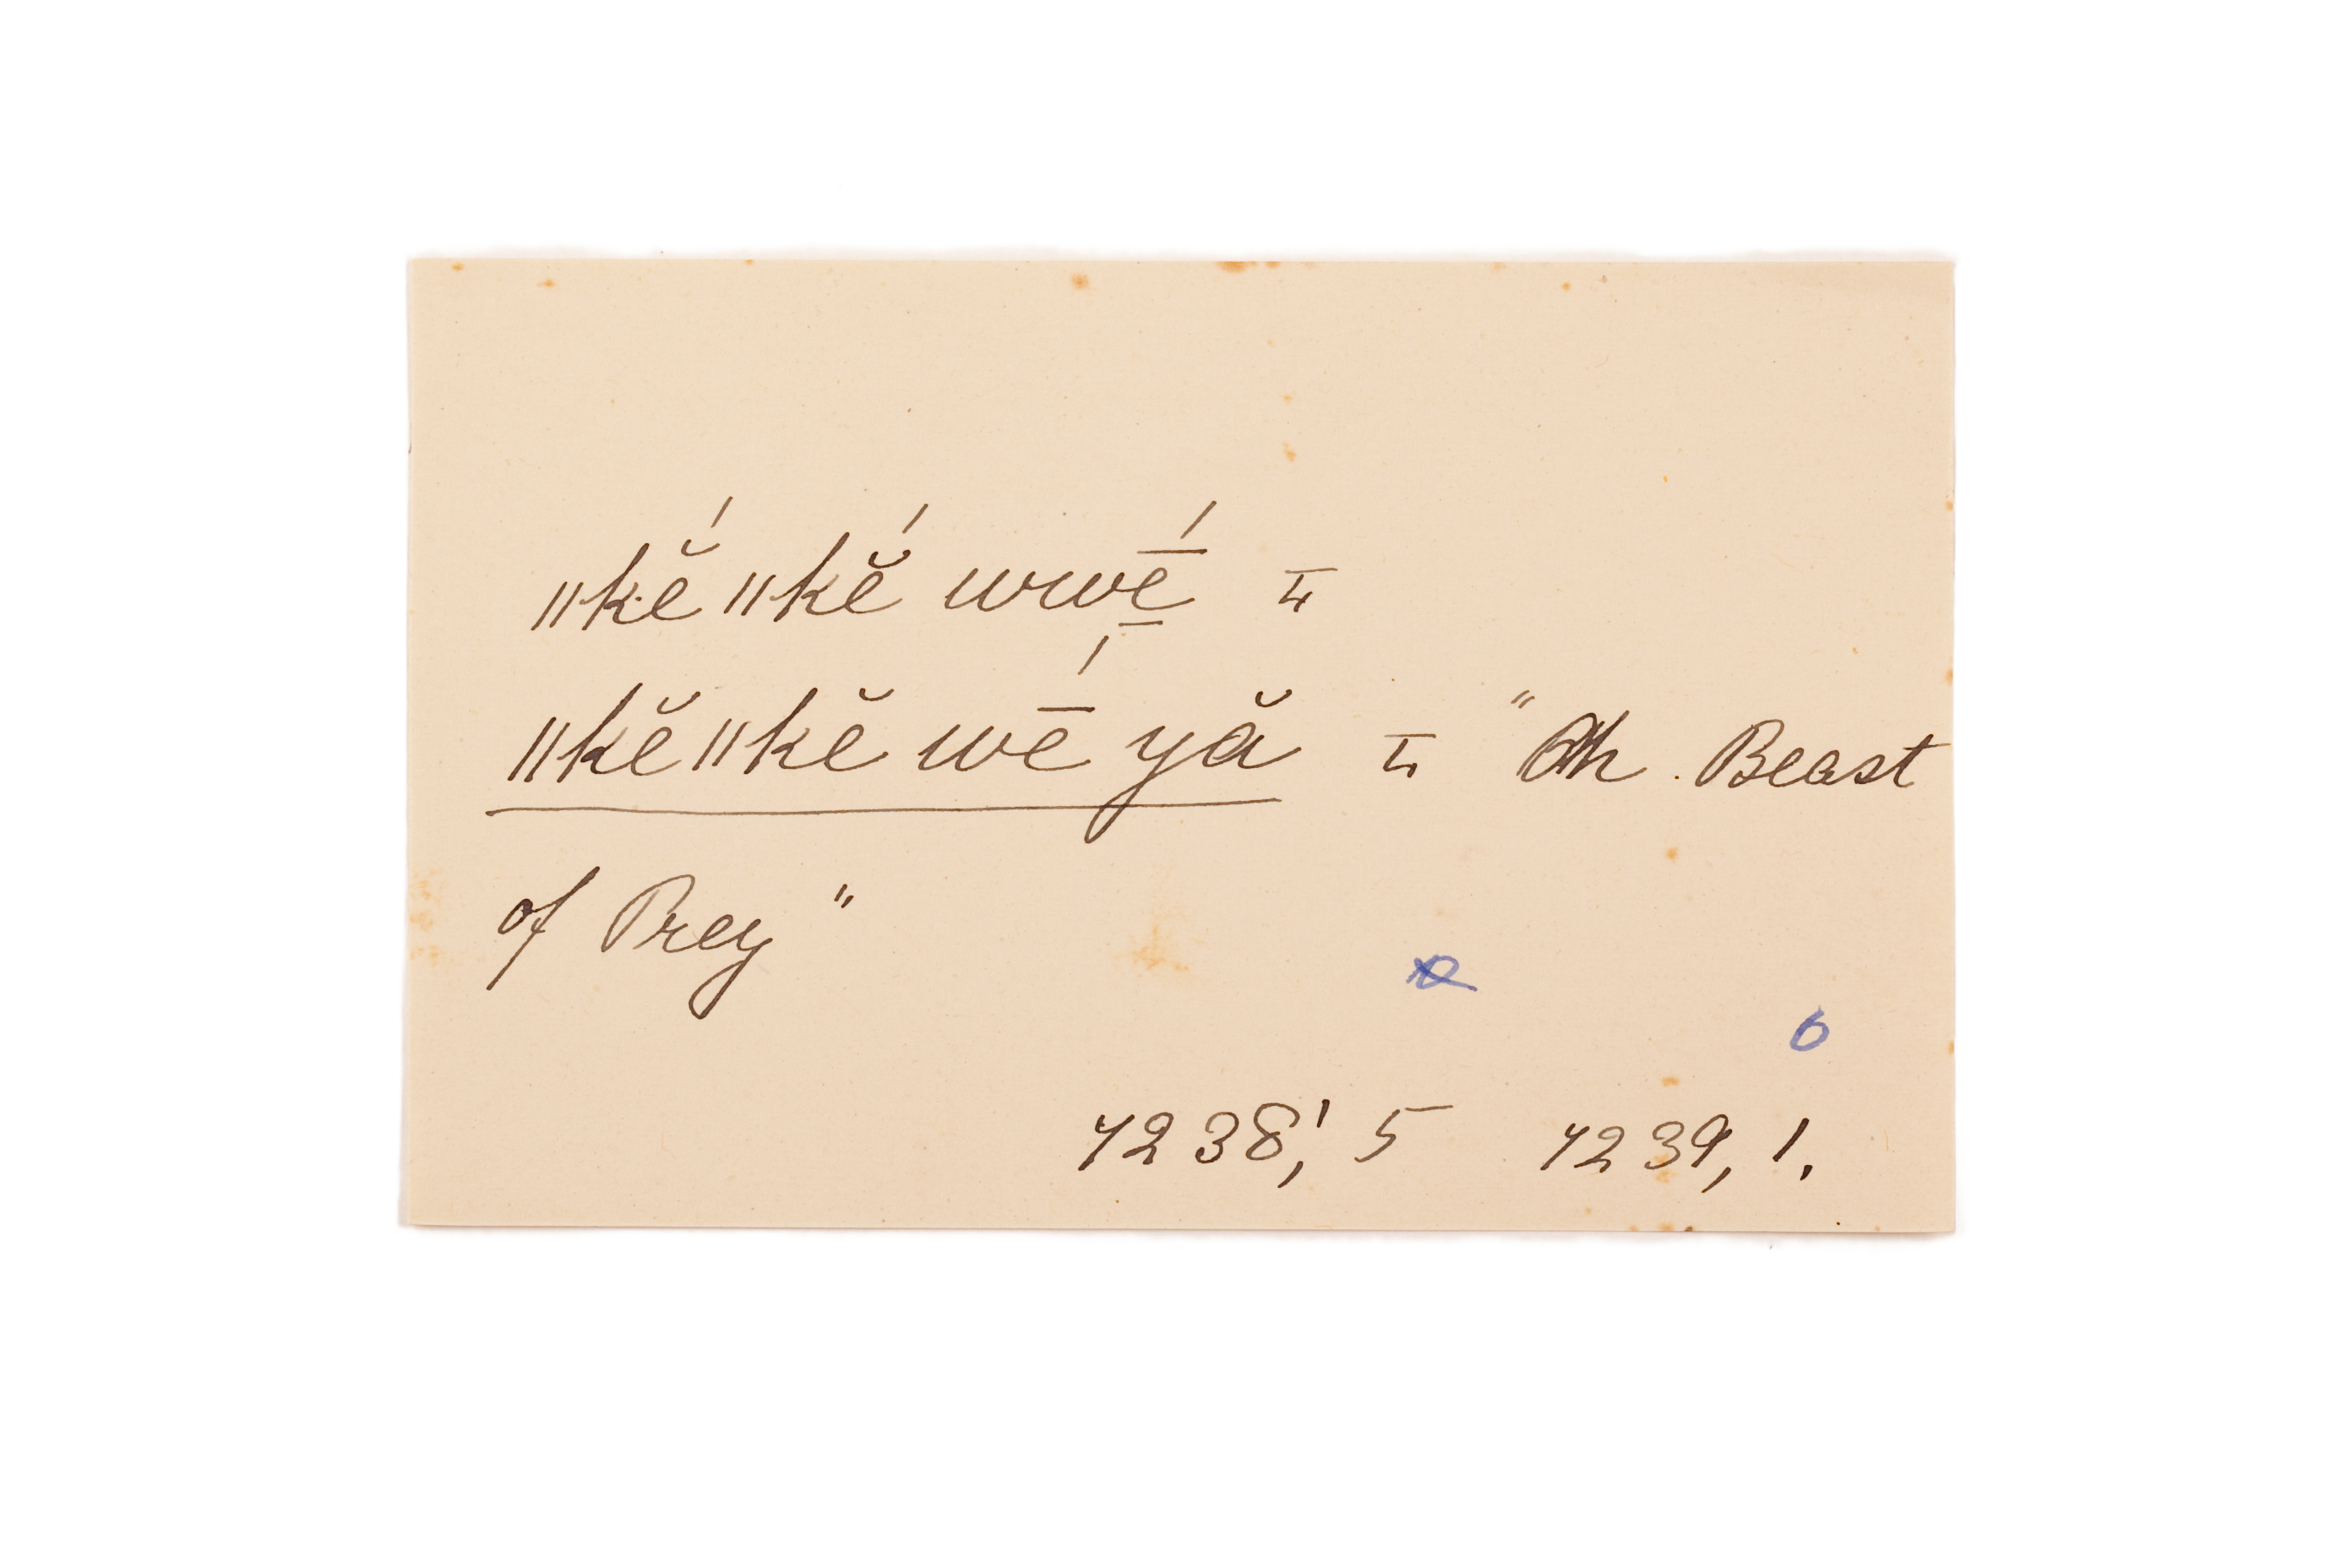 ǁkĕ́ ǁkĕ́ wwḗ̠ =
ǁkĕ ǁkĕ wḗ yă = "Oh Beast
of Prey"
6
7238,' 5 7239, 1.